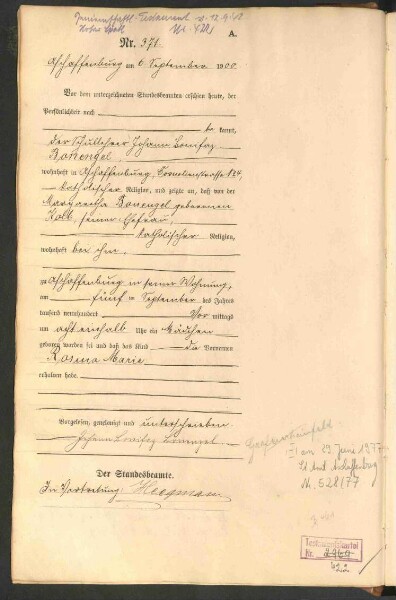 A.
Nr. 371.
Aschaffenburg am 6. September 1900.
Vor dem unterzeichneten Standesbeamten erschien heute, der
Persönlichkeit nach
kannt,
der Schullehrer Johann Bonifaz
Bonengel,
wohnhaft in Aschaffenburg,
katholischer Religion, und zeigte an, daß von der
Margaretha Bonengel geborenen
Kolb, seiner Ehefrau,
katholischer Religion,
wohnhaft bei ihm,
zu Aschaffenburg in seiner Wohnung,
am fünf ten September des Jahres
tausend neunhundert Vor mittags
um achteinhalb Uhr ein Mädchen
geboren worden sei und daß das Kind die Vornamen
Rosina Marie
erhalten habe.
Vorgelesen, genehmigt und unterschrieben
Johann Bonifaz Bonengel
Der Standesbeamte.
In Vertretung:
am 29. Juni 1977
Nr. 528/77
Nr.